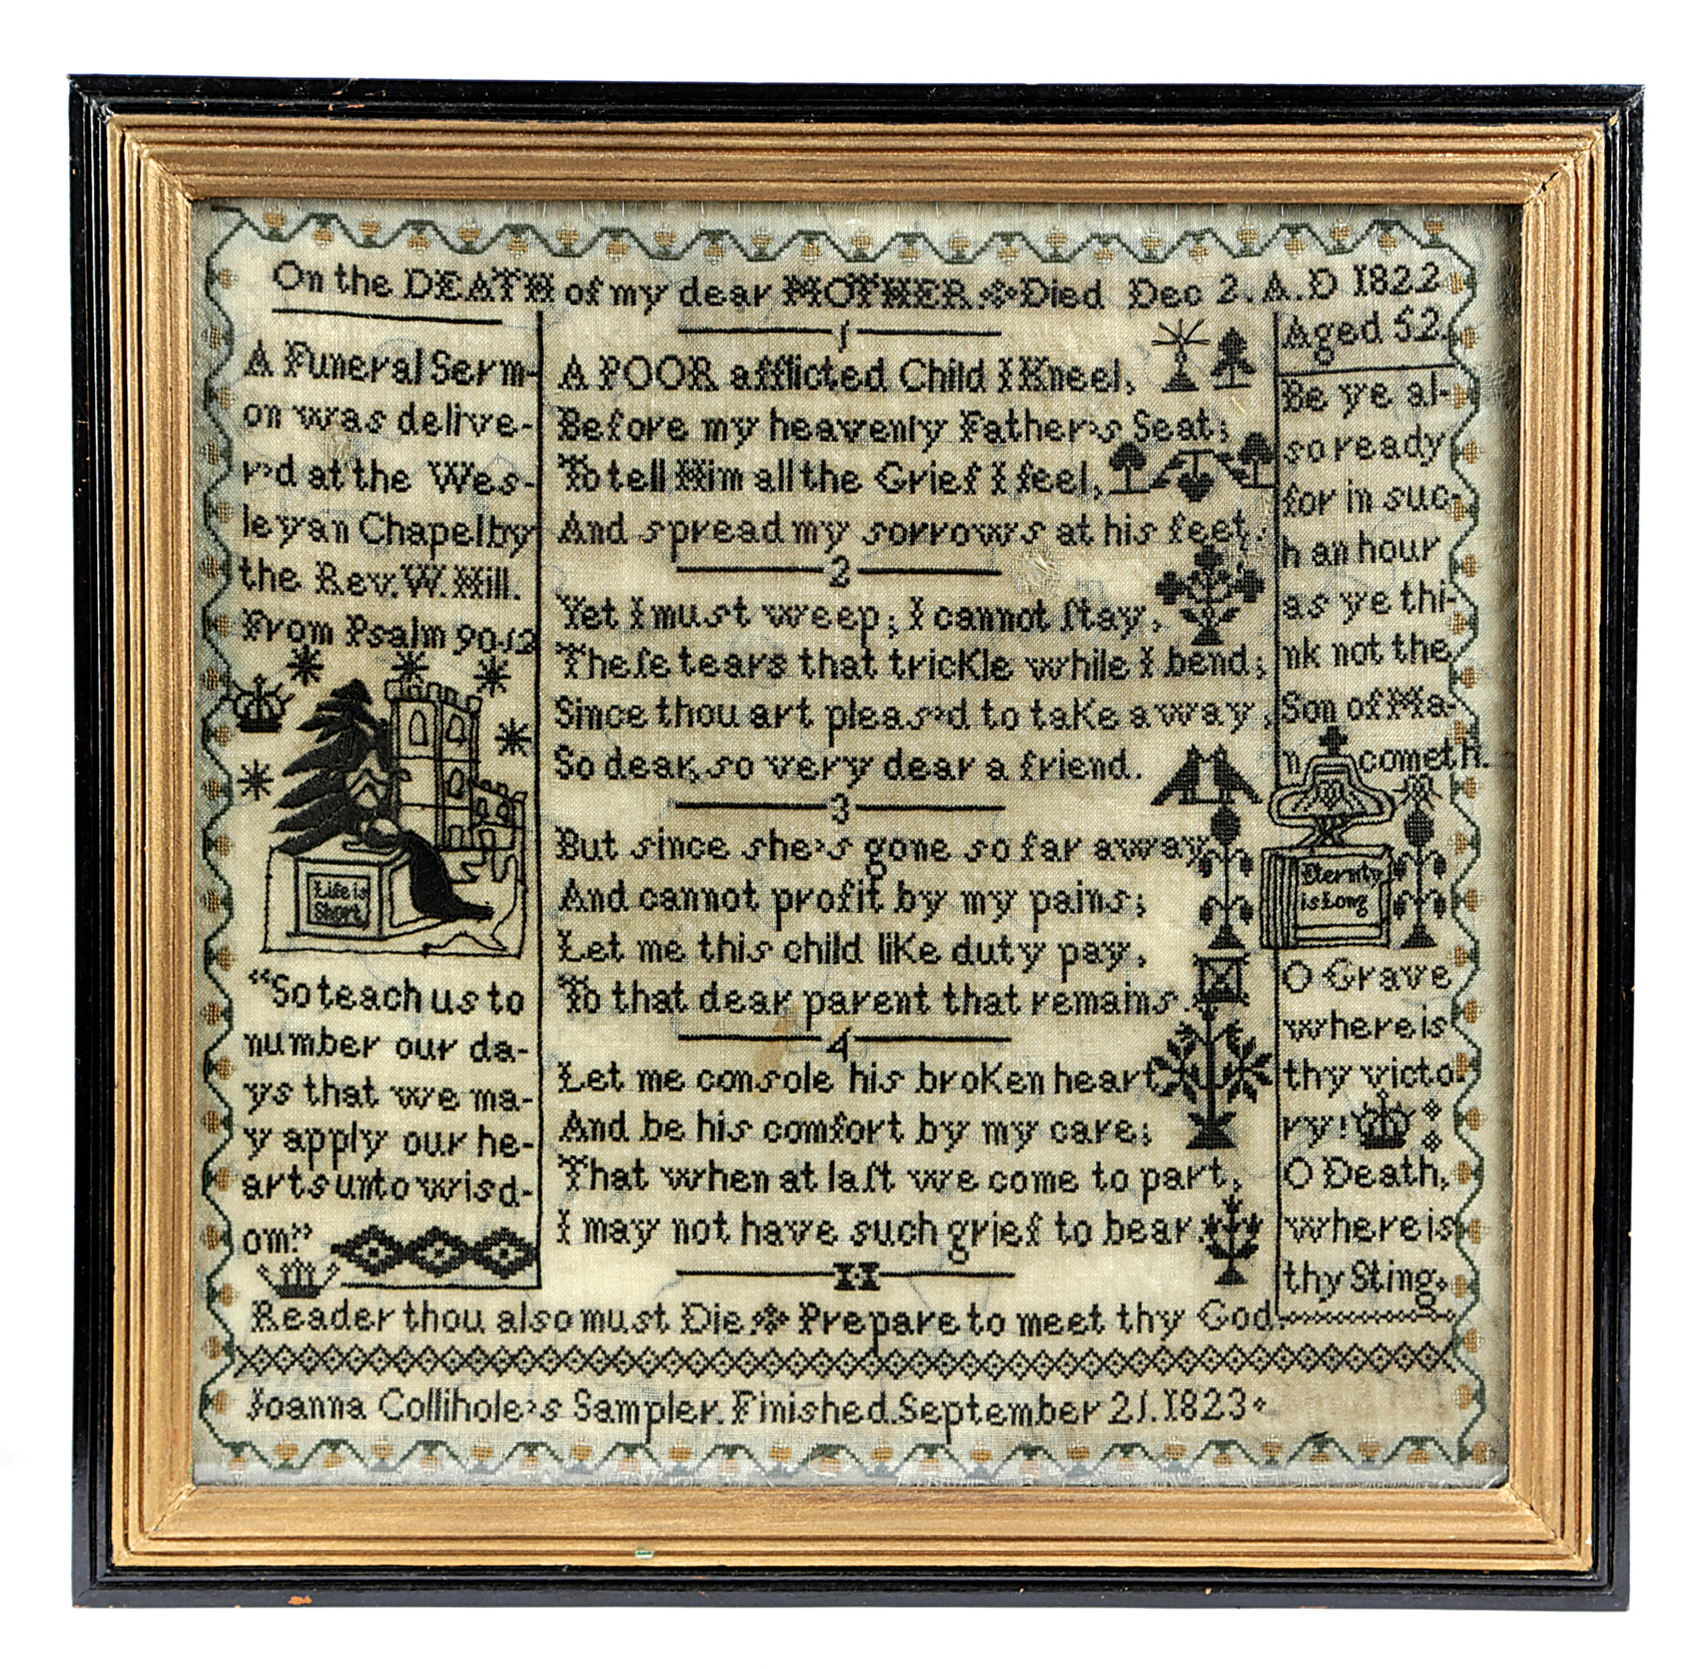 On the DEATH of my dear MOTHER Died Dec 2. A.D 1822
Aged 52.
A Funeral Serm-
on was delive-
r'd at the Wes-
leyan Chapel by
the Rev. W. Hill.
From Psalm 90.12
Life is
Short
"So teach us to
number our da-
ys that we ma-
y apply our he-
arts unto wisd-
om."
1
A POOR afflicted Child I Kneel,
Before my heavenly Father's Seat;
To tell Him all the Grief I feel,
And spread my sorrows at his feet.
2
Yet I must weep; I cannot ſtay,
Theſe tears that tricKle while I bend;
Since thou art pleas'd to taKe away,
So dear, so very dear a friend.
3
But since she's gone so far away
And cannot profit by my pains;
Let me this child liKe duty pay,
To that dear parent that remains.
4
Let me console his broKen heart,
And be his comfort by my care;
That when at laſt we come to part,
I may not have such grief to bear.
Be ye al-
so ready
for in suc-
h an hour
as ye thi-
nk not the
Son of Ma-
n cometh.
Eternity
is Long
O Grave
where is
thy victo-
ry!
O Death,
where is
thy Sting.
Reader thou also must Die Prepare to meet thy God.
Joanna Collihole's Sampler. Finished. September 21. 1823